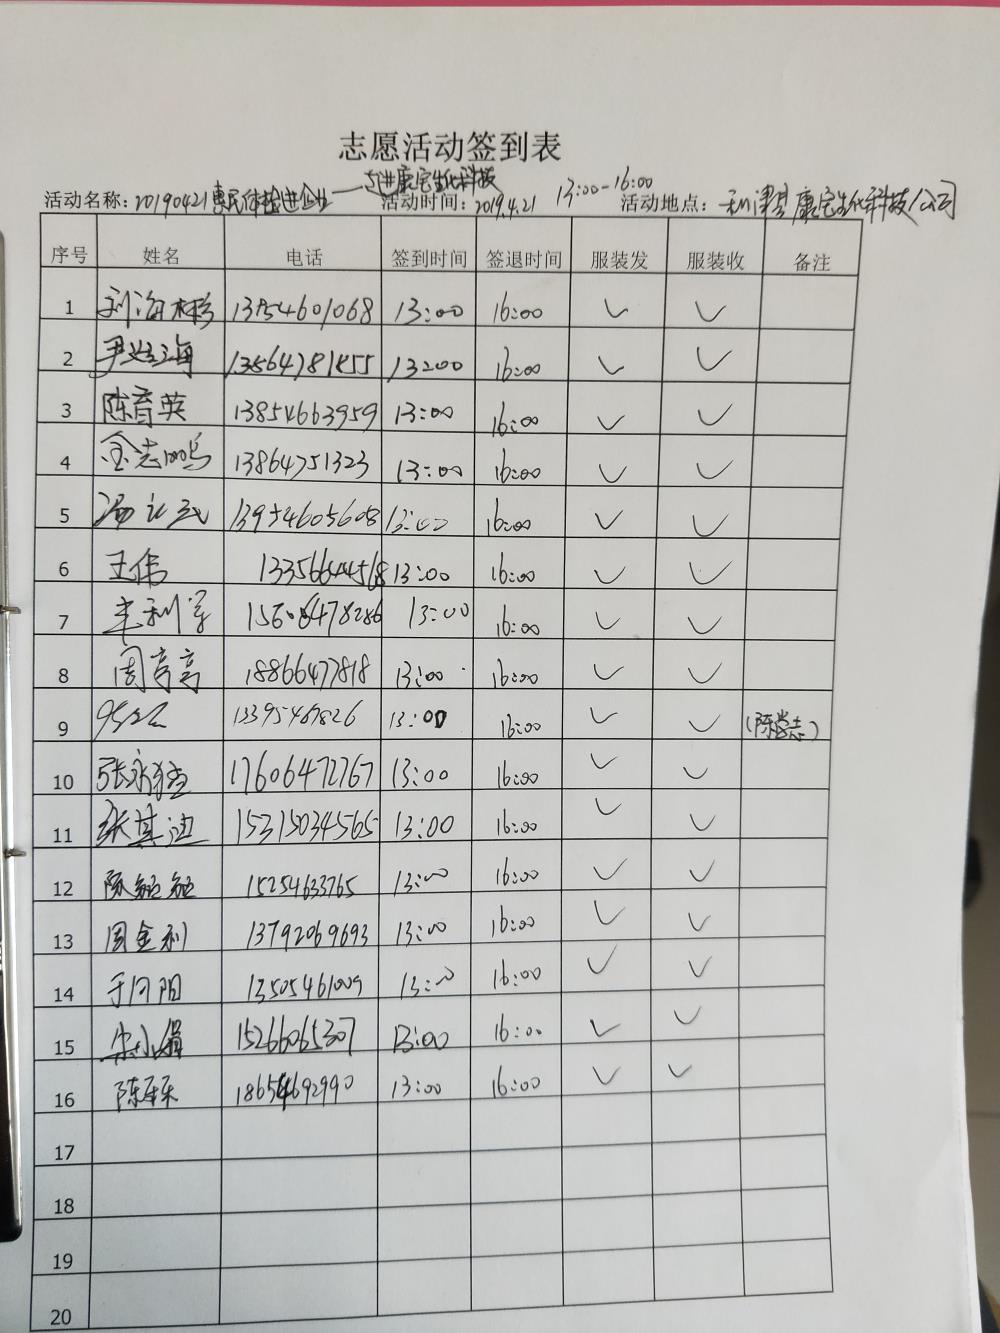 志愿活动签到表
——走进康宝生化科技
活动名称：20190421惠民体检进企业 活动时间：2019.4.21 13:00-16:00 活动地点：利津县康宝生化科技公司
序号 姓名 电话 签到时间 签退时间 服装发 服装收 备注
1 刘海彬 13754601068 13:00 16:00 ✓ ✓
2 13:00 16:00 ✓ ✓
3 陈育英 13854663959 13:00 16:00 ✓ ✓
4 金志鹏 13864751323 13:00 16:00 ✓ ✓
5 13954605608 13:00 16:00 ✓ ✓
6 王伟 13356644568 13:00 16:00 ✓ ✓
7 15606478286 13:00 16:00 ✓ ✓
8 周亭亭 18866477818 13:00 16:00 ✓ ✓
9 13395467826 13:00 16:00 ✓ ✓ (陈学志)
10 17606472767 13:00 16:00 ✓ ✓
11 张其迪 15315034565 13:00 16:00 ✓ ✓
12 15254633765 13:00 16:00 ✓ ✓
13 周金利 13792069693 13:00 16:00 ✓ ✓
14 于向阳 13505461009 13:00 16:00 ✓ ✓
15 宋小娟 15266065307 13:00 16:00 ✓ ✓
16 18654692990 13:00 16:00 ✓ ✓
17
18
19
20